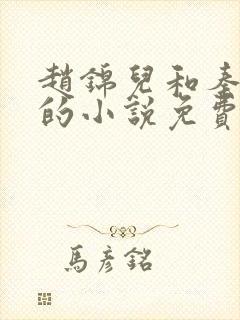 趙錦兒和秦
的小說免費
馬彥銘